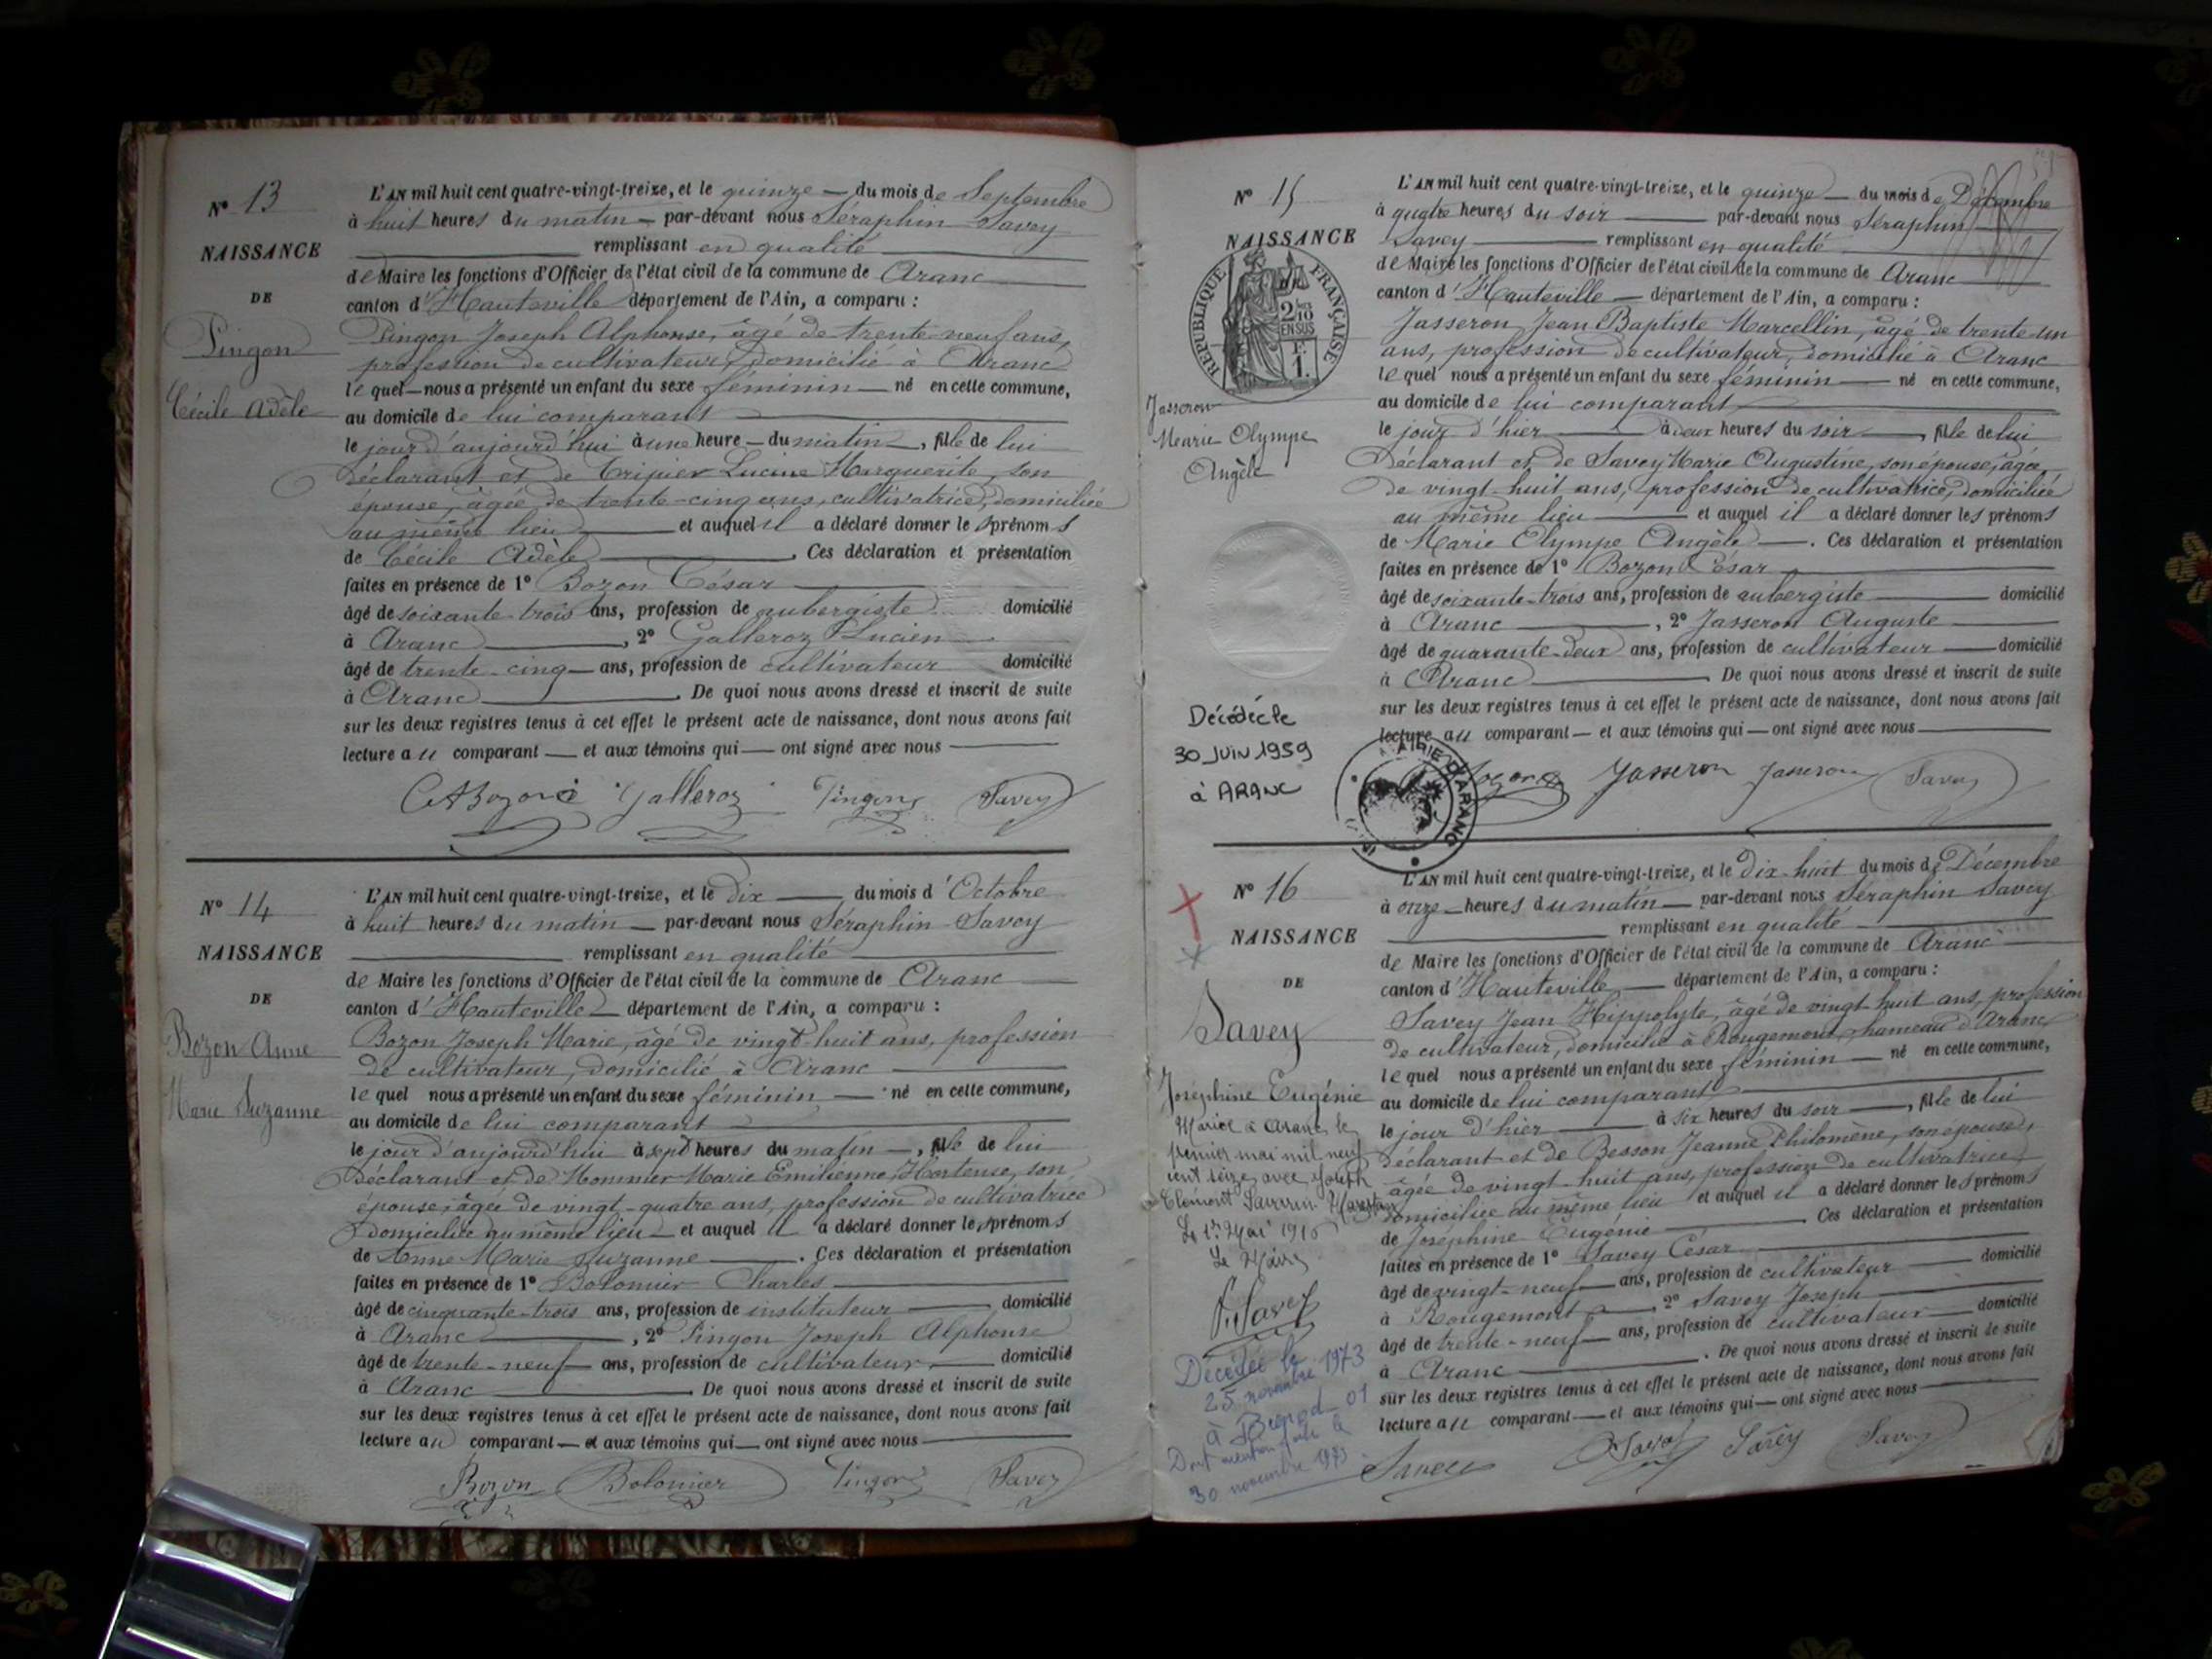 N° 13
NAISSANCE
DE
Pingon
Cécile Adèle
L'AN mil huit cent quatre-vingt-treize, et le quinze du mois de Septembre
à huit heures du matin par-devant nous Séraphin Savey
remplissant en qualité
de Maire les fonctions d'Officier de l'état civil de la commune de Aranc
canton d'Hauteville département de l'Ain, a comparu :
Pingon Joseph Alphonse, âgé de trente-neuf ans,
profession de cultivateur, domicilié à Aranc
lequel nous a présenté un enfant du sexe féminin né en cette commune,
au domicile de lui comparant
le jour d'aujourd'hui à une heure du matin, fille de lui
déclarant et de Tripier Lucine Marguerite, son
épouse, âgée de trente-cinq ans, cultivatrice, domiciliée
au même lieu et auquel il a déclaré donner les prénoms
de Cécile Adèle. Ces déclaration et présentation
faites en présence de 1° Bozon César
âgé de soixante-trois ans, profession de aubergiste domicilié
à Aranc, 2° Galleroz Lucien
âgé de trente-cinq ans, profession de cultivateur domicilié
à Aranc. De quoi nous avons dressé et inscrit de suite
sur les deux registres tenus à cet effet le présent acte de naissance, dont nous avons fait
lecture au comparant et aux témoins qui ont signé avec nous
Galleroz Pingon Savey
N° 14
NAISSANCE
DE
Bozon Anne
Marie Suzanne
L'AN mil huit cent quatre-vingt-treize, et le dix du mois d'Octobre
à huit heures du matin par-devant nous Séraphin Savey
remplissant en qualité
de Maire les fonctions d'Officier de l'état civil de la commune de Aranc
canton d'Hauteville département de l'Ain, a comparu :
Bozon Joseph Marie, âgé de vingt-huit ans, profession
de cultivateur, domicilié à Aranc
lequel nous a présenté un enfant du sexe féminin né en cette commune,
au domicile de lui comparant
le jour d'aujourd'hui à sept heures du matin, fille de lui
déclarant et de Mommier Marie Emilienne Hortense, son
épouse, âgée de vingt-quatre ans, profession de cultivatrice
domiciliée au même lieu et auquel il a déclaré donner les prénoms
de Anne Marie Suzanne. Ces déclaration et présentation
faites en présence de 1° Bolomier Charles
âgé de cinquante-trois ans, profession de instituteur domicilié
à Aranc, 2° Pingon Joseph Alphonse
âgé de trente-neuf ans, profession de cultivateur domicilié
à Aranc. De quoi nous avons dressé et inscrit de suite
sur les deux registres tenus à cet effet le présent acte de naissance, dont nous avons fait
lecture au comparant et aux témoins qui ont signé avec nous
Bozon Bolomier Pingon Savey
N° 15
NAISSANCE
RÉPUBLIQUE FRANÇAISE
2/10
EN SUS
1 F.
Jasseron
Marie Olympe
Angèle
Décédée le
30 JUIN 1959
à ARANC
MAIRIE D'ARANC
L'AN mil huit cent quatre-vingt-treize, et le quinze du mois de Décembre
à quatre heures du soir par-devant nous Séraphin
Savey remplissant en qualité
de Maire les fonctions d'Officier de l'état civil de la commune de Aranc
canton d'Hauteville département de l'Ain, a comparu :
Jasseron Jean Baptiste Marcellin, âgé de trente-un
ans, profession de cultivateur, domicilié à Aranc
lequel nous a présenté un enfant du sexe féminin né en cette commune,
au domicile de lui comparant
le jour d'hier à deux heures du soir, fille de lui
déclarant et de Savey Marie Augustine, son épouse, âgée
de vingt-huit ans, profession de cultivatrice, domiciliée
au même lieu et auquel il a déclaré donner les prénoms
de Marie Olympe Angèle. Ces déclaration et présentation
faites en présence de 1° Bozon César
âgé de soixante-trois ans, profession de aubergiste domicilié
à Aranc, 2° Jasseron Auguste
âgé de quarante-deux ans, profession de cultivateur domicilié
à Aranc. De quoi nous avons dressé et inscrit de suite
sur les deux registres tenus à cet effet le présent acte de naissance, dont nous avons fait
lecture au comparant et aux témoins qui ont signé avec nous
Jasseron Jasseron Savey
N° 16
NAISSANCE
DE
Savey
Joséphine Eugénie
Mariée à Aranc le
premier mai mil neuf
cent seize avec Joseph
Clément
Le 1er Mai 1916
Le Maire
Savey
Décédée le
25 novembre 1973
à 01
Dont mention faite le
30 novembre 1973
L'AN mil huit cent quatre-vingt-treize, et le dix-huit du mois de Décembre
à onze heures du matin par-devant nous Séraphin Savey
remplissant en qualité
de Maire les fonctions d'Officier de l'état civil de la commune de Aranc
canton d'Hauteville département de l'Ain, a comparu :
Savey Jean Hippolyte, âgé de vingt-huit ans, profession
de cultivateur, domicilié à Rougemont, hameau d'Aranc
lequel nous a présenté un enfant du sexe féminin né en cette commune,
au domicile de lui comparant
le jour d'hier à six heures du soir, fille de lui
déclarant et de Besson Jeanne Philomène, son épouse,
âgée de vingt-huit ans, profession de cultivatrice
domiciliée au même lieu et auquel il a déclaré donner les prénoms
de Joséphine Eugénie. Ces déclaration et présentation
faites en présence de 1° Savey César
âgé de vingt-neuf ans, profession de cultivateur domicilié
à Rougemont, 2° Savey Joseph
âgé de trente-neuf ans, profession de cultivateur domicilié
à Aranc. De quoi nous avons dressé et inscrit de suite
sur les deux registres tenus à cet effet le présent acte de naissance, dont nous avons fait
lecture au comparant et aux témoins qui ont signé avec nous
Savey Savey